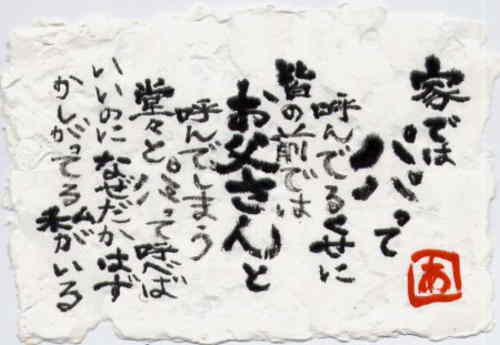 家では
パパって
呼んでるくせに
皆の前では
お父さんと
呼んでしまう
堂々とパパって呼べば
いいのになぜだかはず
かしがってる私がいる
あ